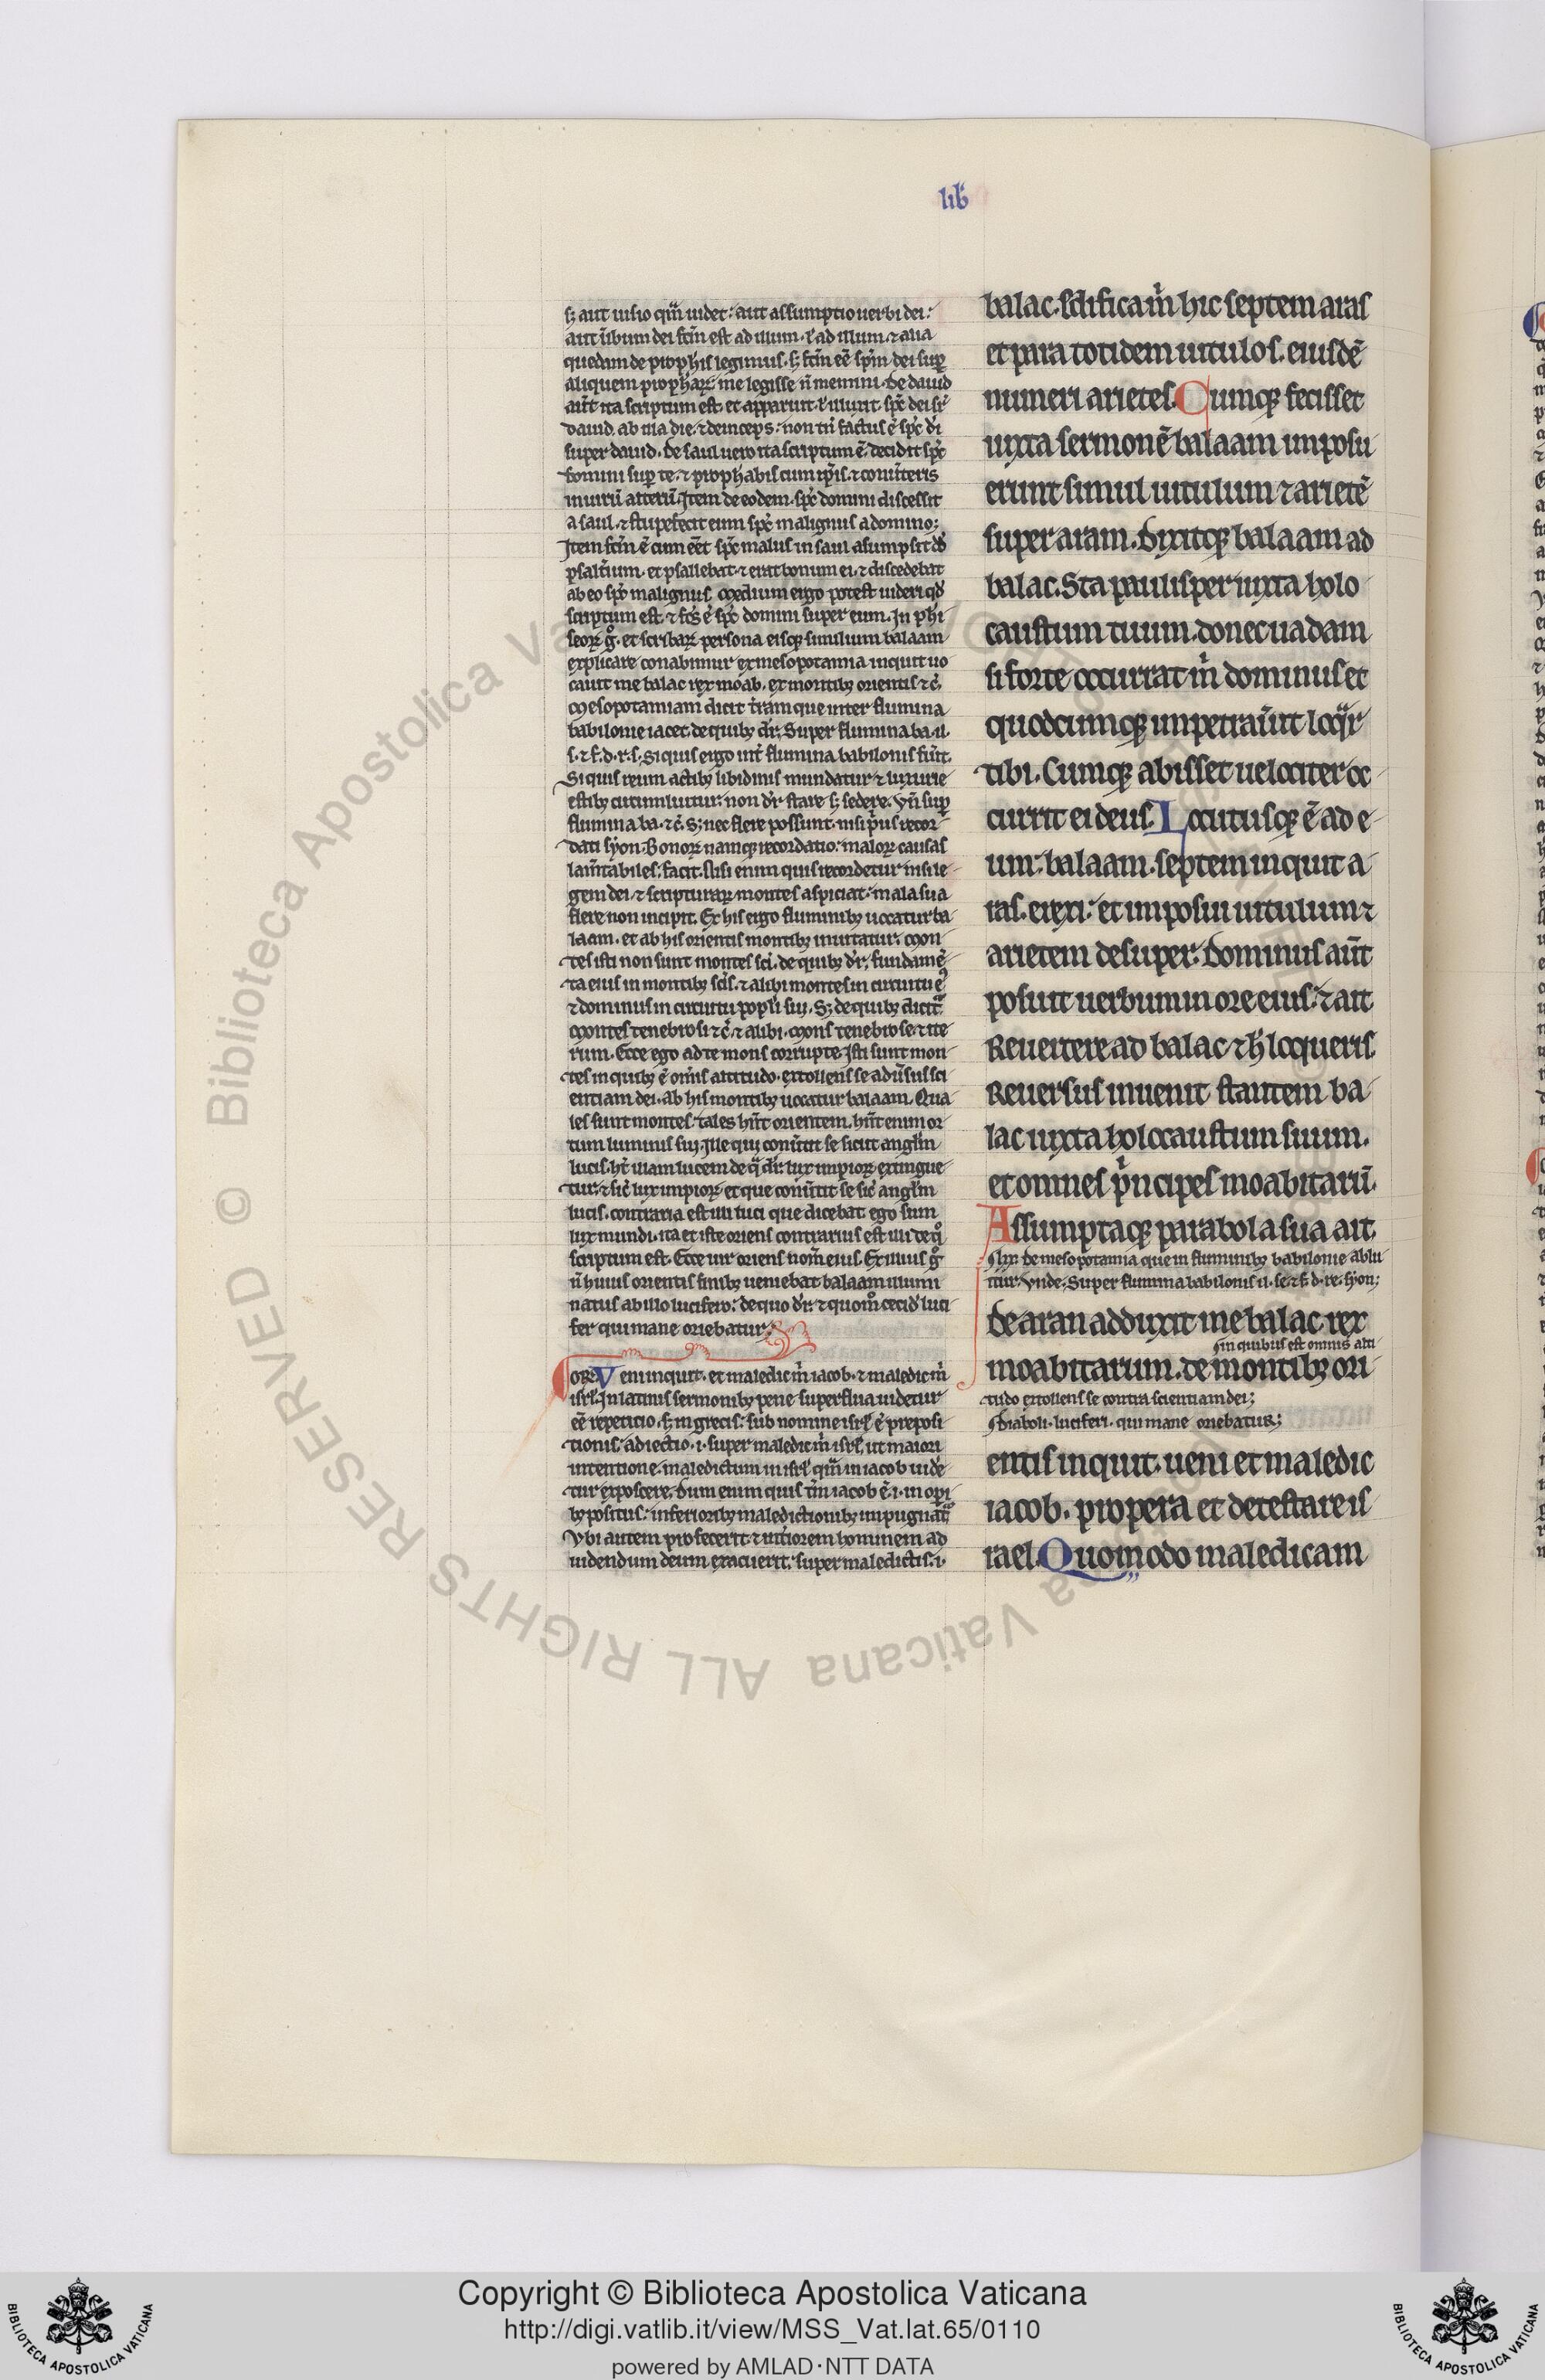 lib̄
ꝫ aut̄ uisio qm̄ uidet: aut assumptio uerbi dei:
aut ūbum dei fcm̄ est ad illum. ł ad illum. ⁊ alia
quedam de proph̄is legimus. ꝫ fcm̄ eē spm̄ dei suꝑ
aliquem prophaꝝ: me legisse n̄ memini. De dauid
aut̄ ita scriptum est. et apparuit. ł illuxit. spc̄ dei sr̄
dauid. ab illa die. ⁊ deinceps: non tn̄ factus ē spc̄ di
super dauid. De saul uero ita scriptum ē. decidit spc̄
domini suꝑ te. ⁊ prophabis cum ip̄is. ⁊ conuteris
in uirū alterū. Item de eodem. spc̄ domini discessit
a saul. ⁊ stupefecit eum spc̄ malignus a domino:
Item fcm̄ ē cum eēt spc̄ malus in saul assumpsit dd̄
psaltium. et psallebat. ⁊ erat bonum ei. ⁊ discedebat
ab eo spc̄ malignus. Medium ergo potest uideri qd̄
scriptum est. ⁊ fcs̄ ē spc̄ domini super eum. In phi
seoꝝ g̊. et scribaꝝ persona eisqꝫ similium balaam
explicare conabimur ex mesopotamia inquit uo
cauit me balac rex moab. et montibꝫ orientis ⁊ c̄.
Mesopotamiam dicit tr̄am que inter flumina
babilonie iacet. de quibꝫ dr̄. Super flumina ba. il.
s. ⁊ f. d. r. s. Si quis ergo int̄ flumina babilonis fuit.
Si quis reum actibꝫ libidinis mundatur ⁊ luxurie
estibꝫ circumluitur: non dr̄ stare ꝫ sedere. Vn̄ suꝑ
flumina ba. ⁊ c̄. Sꝫ nec flere possunt. nisi pͥus recor
dati syon. Bonoꝝ namqꝫ recordatio: maloꝝ causas
lam̄tabiles: facit. Nisi enim quis recordetur insile
gem dei. ⁊ scripturaꝝ montes aspiciat: mala sua
flere non incipit. Ex his ergo fluminibꝫ uocatur ba
laam. et ab his orientis montibꝫ inuitatur. Mon
tes isti non sunt montes sci. de quibꝫ dr̄. fundamē
ta eius in montibꝫ scis. ⁊ alibi montes in circuitu eꝰ
⁊ dominus in circuitu popli sui. Sꝫ de quibꝫ dicitͣ
Montes tenebrosi ⁊ c̄. ⁊ alibi. Mons tenebrose. ⁊ ite
rum. Ecce ego ad te mons corrupte. Isti sunt mon
tes in quibꝫ ē om̄is altitudo. extollens se adūsus sci
entiam dei. ab his montibꝫ uocatur balaam. Qua
les sunt montes: tales hn̄t orientem. hn̄t enim or
tum luminis sui. Ille qui conūtit se sicut angłm
lucis. ht̄ illam lucem de qͣ dr̄. lux impioꝝ extingue
tur. ⁊ sic̄ lux impioꝝ et que conūtit se sic̄ angłm
lucis. contraria est illi luci que dicebat ego sum
lux mundi. ita et iste oriens contrarius est illi de qͦ
scriptum est. Ecce uir oriens nom̄ eius. Ex illius g̊
n̄ huius orientis finibꝫ ueniebat balaam illumi
natus ab illo lucifero: de quo dr̄. ⁊ quom̊ cecid̄ luci
fer qui mane oriebatur:
ORI. Veni inquit. et maledic m̄ iacob. ⁊ maledic m̄
isrł. In latinis sermonibꝫ pene superflua uidetur
eē repeticio. ꝫ in grecis: sub nomine isrł ē preposi
tionis: adiectio. i. super maledic m̄ isrł. ut maiori
intentione: maledictum in isrł qm̄ in iacob uide
tur exposcere. Dum enim quis tm̄ iacob ē. i. in opi
bꝫ positus: inferioribꝫ maledictionibꝫ impugnatͣ
Vbi autem profecerit. ⁊ int̄iorem hominem ad
uidendum deum exacuerit. super maledictis. i.
balac. Edifica m̄ hic septem aras
et para totidem uitulos. eiusdē
numeri arietes. Cumqꝫ fecisset
iuxta sermonē balaam imposu
erunt simul uitulum ⁊ arietē
super aram. Dixitqꝫ balaam ad
balac. Sta paulisper iuxta holo
caustum tuum. donec uadam
si forte occurrat m̄ dominus et
quodcumqꝫ imperaūit loqͣr
tibi. Cumqꝫ abisset uelociter oc
currit ei deus. Locutusqꝫ ē ad e
um: balaam. septem inquit a
ras. erexi: et imposui uitulum ⁊
arietem desuper. Dominus aut̄
posuit uerbum in ore eius. ⁊ ait
Reuertere ad balac ⁊ h̄ loqueris.
Reuersus inuenit stantem ba
lac iuxta holocaustum suum.
et omnes pͥncipes moabitarū.
Assumptaqꝫ parabola sua ait
lxx. de mesopotamia que in fluminibꝫ babilonie ablu
itur. Vnde. Super flumina babilonis il. se. ⁊ f. d. re. syon:
de aran adduxit me balac rex
in quibus est omnis alti
moabitarum. de montibꝫ ori
tudo extollens se contra scientiam dei:
Diaboli. luciferi. qui mane oriebatur:
entis inquit. ueni et maledic
iacob. propera et detestare is
rael. Quomodo maledicam
Copyright © Biblioteca Apostolica Vaticana
http://digi.vatlib.it/view/MSS_Vat.lat.65/0110
powered by AMLAD·NTT DATA
BIBLIOTECA APOSTOLICA VATICANA
BIBLIOTECA APOSTOLICA VATICANA